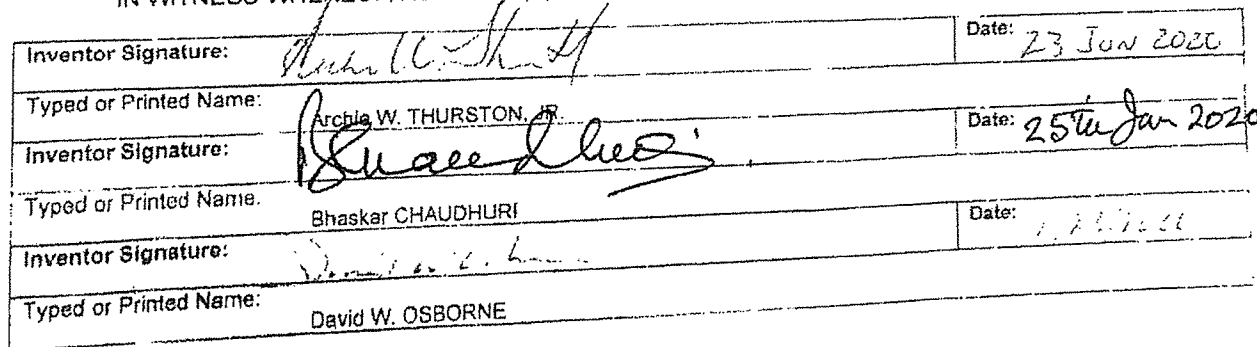 IN WITNESS WHEREOF
Inventor Signature: Date: 23 Jun 2020
Typed or Printed Name: Archie W. THURSTON, JR.
Inventor Signature: Date: 25th Jan 2020
Typed or Printed Name. Bhaskar CHAUDHURI
Inventor Signature: Date:
Typed or Printed Name: David W. OSBORNE